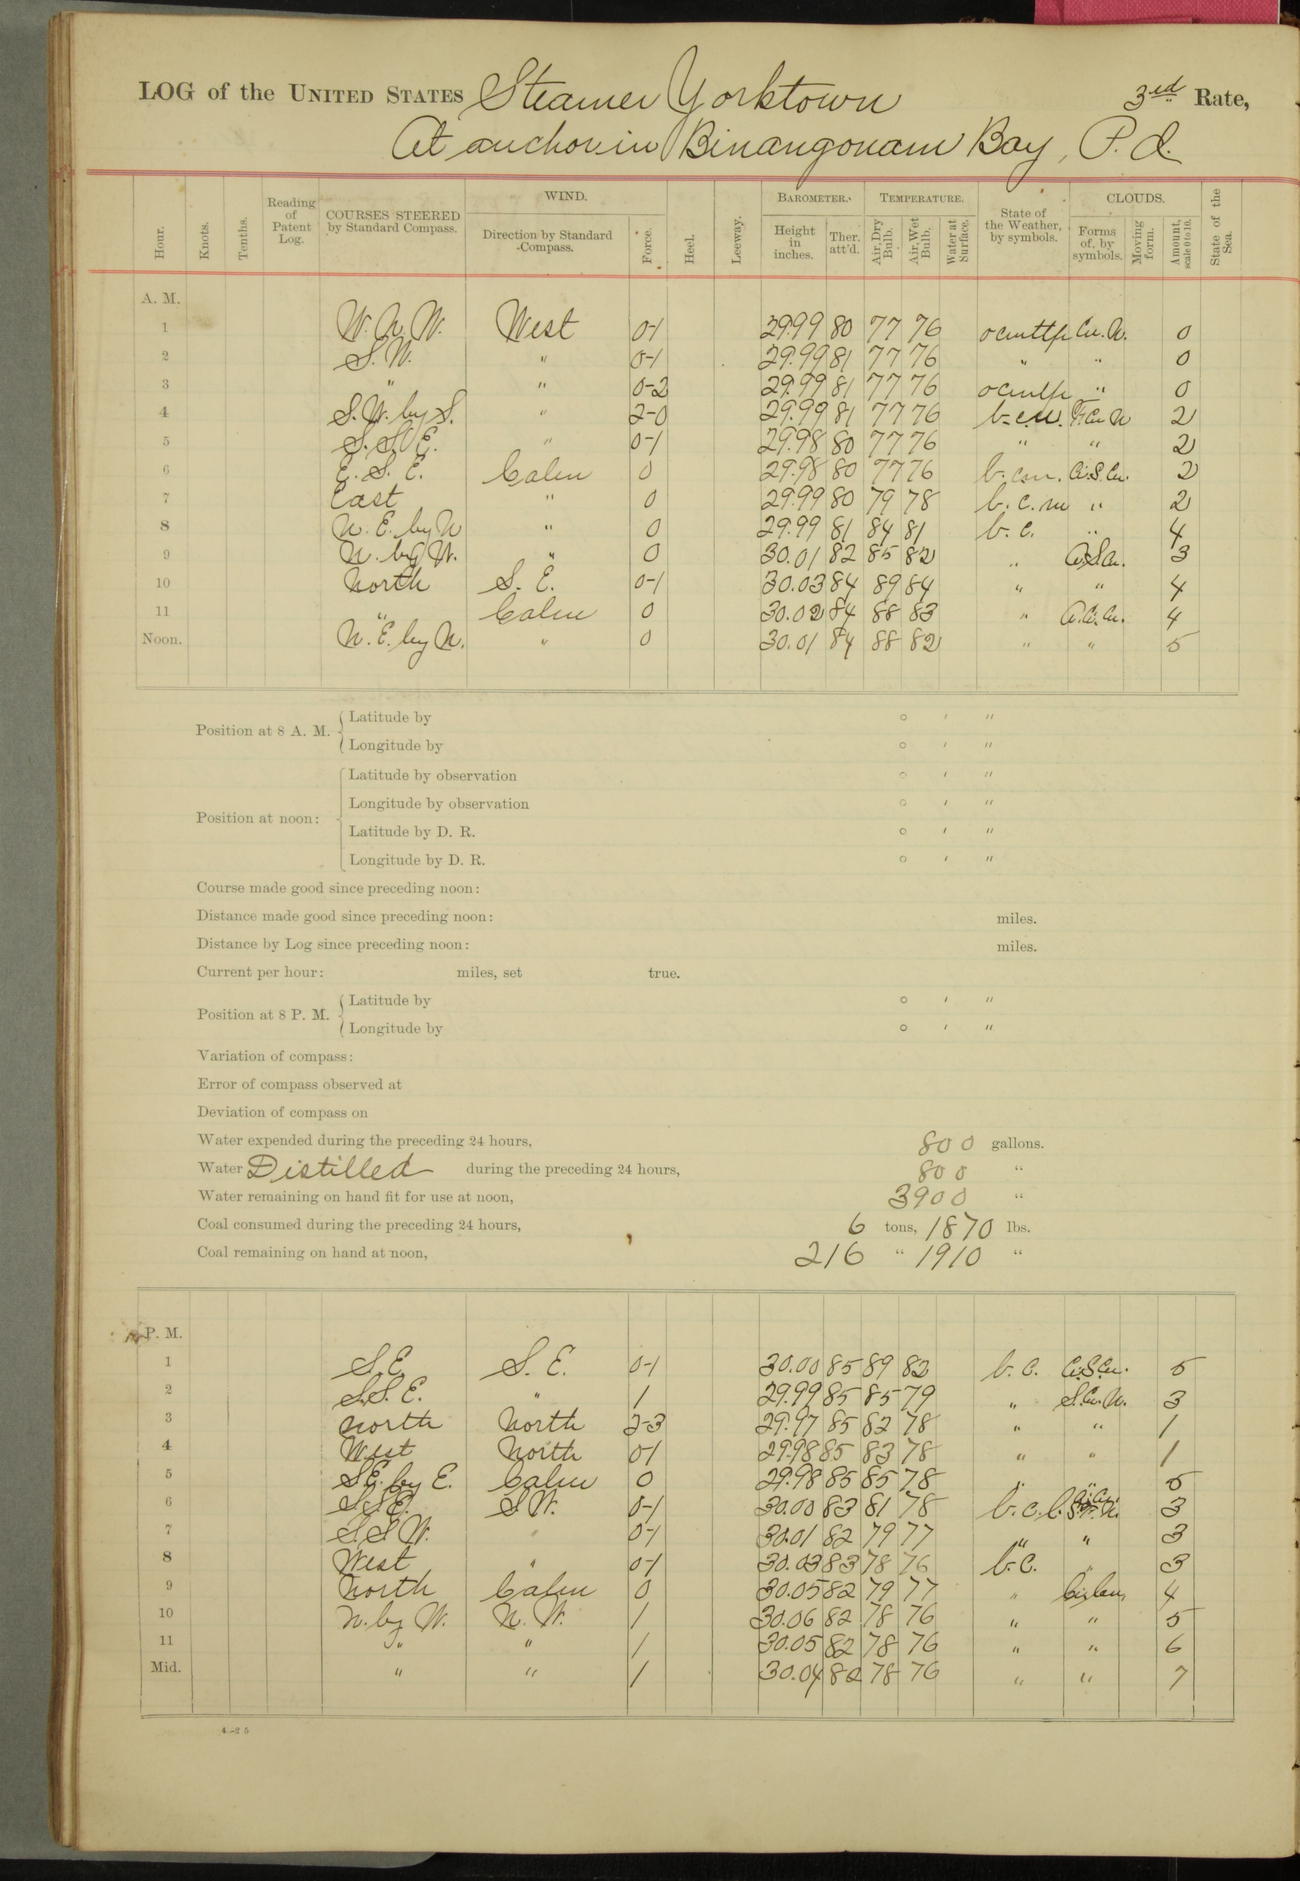 LOG of the UNITED STATES Steamer Yorktown 3rd Rate,
At anchor in Binangonam Bay, P. I.
Hour. Knots. Tenths. Reading of Patent Log. COURSES STEERED by Standard Compass. WIND. Direction by Standard Compass. Force. Heel. Leeway. BAROMETER. Height in inches. Ther. att'd. TEMPERATURE. Air, Dry Bulb. Air, Wet Bulb. Water at Surface. State of the Weather, by symbols. CLOUDS. Forms of, by symbols. Moving form. Amount, scale 0 to 10. State of the Sea.
A. M.
1 W. N. W. West 0-1 29.99 80 77 76 Cu. N. 0
2 S. W. " 0-1 29.99 81 77 76 " " 0
3 " " 0-2 29.99 81 77 76 " 0
4 S. W. by S. " 2-0 29.99 81 77 76 2
5 S. S. E. " 0-1 29.98 80 77 76 " " 2
6 E. S. E. Calm 0 29.98 80 77 76 b. c. m. Ci. S. Cu. 2
7 East " 0 29.99 80 79 78 b. c. m " 2
8 N. E. by N " 0 29.99 81 84 81 b. c. " 4
9 N. by W. " 0 30.01 82 85 82 " 3
10 North S. E. 0-1 30.03 84 89 84 " " 4
11 " Calm 0 30.02 84 88 83 " 4
Noon. N. E. by N. " 0 30.01 84 88 82 " " 5
Position at 8 A. M. Latitude by ° ′ ″
Longitude by ° ′ ″
Position at noon: Latitude by observation ° ′ ″
Longitude by observation ° ′ ″
Latitude by D. R. ° ′ ″
Longitude by D. R. ° ′ ″
Course made good since preceding noon:
Distance made good since preceding noon: miles.
Distance by Log since preceding noon: miles.
Current per hour: miles, set true.
Position at 8 P. M. Latitude by ° ′ ″
Longitude by ° ′ ″
Variation of compass:
Error of compass observed at
Deviation of compass on
Water expended during the preceding 24 hours, 800 gallons.
Water Distilled during the preceding 24 hours, 800 "
Water remaining on hand fit for use at noon, 3900 "
Coal consumed during the preceding 24 hours, 6 tons, 1870 lbs.
Coal remaining on hand at noon, 216 " 1910 "
P. M.
1 S. E. S. E. 0-1 30.00 85 89 82 b. c. Ci. S. Cu. 5
2 S. S. E. " 1 29.99 85 85 79 " S. Cu. N. 3
3 North North 2-3 29.97 85 82 78 " " 1
4 West North 0-1 29.98 85 83 78 " " 1
5 S. E. by E. Calm 0 29.98 85 85 78 " " 5
6 S. S. E. S. W. 0-1 30.00 83 81 78 b. c. l. 3
7 S. S. W. " 0-1 30.01 82 79 77 " " 3
8 West " 0-1 30.03 83 78 76 b. c. " 3
9 North Calm 0 30.05 82 79 77 " 4
10 N. by W. N. W. 1 30.06 82 78 76 " " 5
11 " " 1 30.05 82 78 76 " " 6
Mid. " " 1 30.04 82 78 76 " " 7
4-25